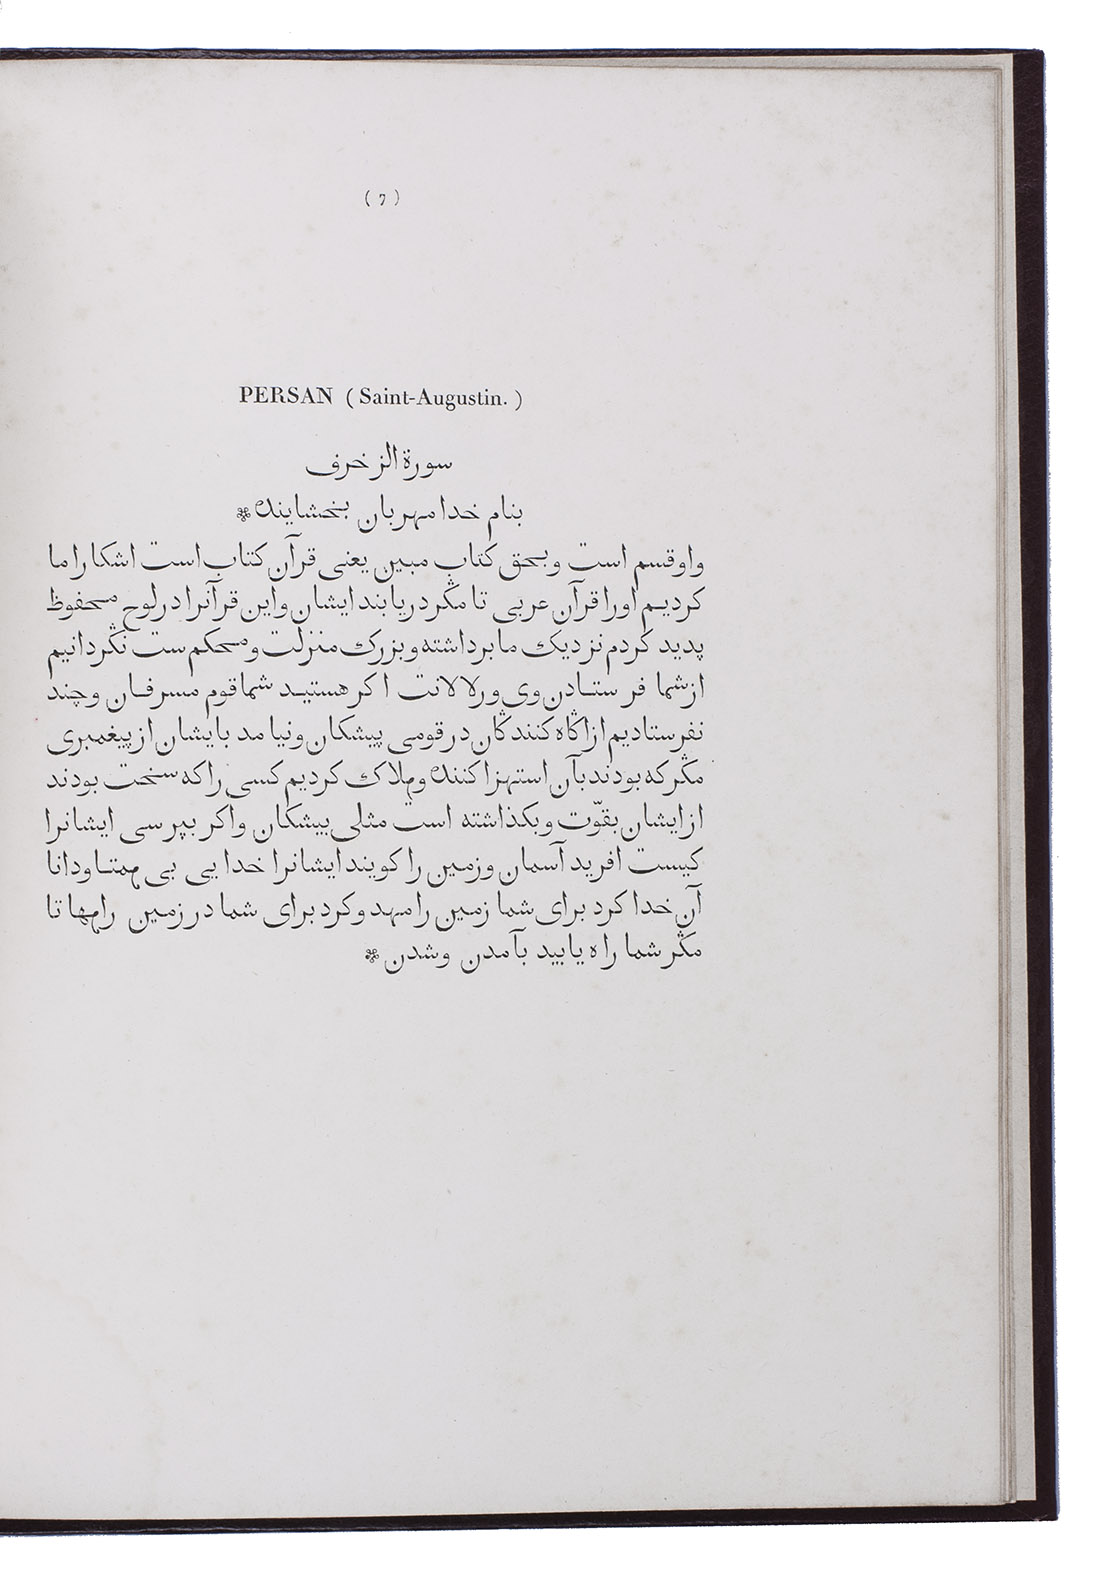 ( 7 )
PERSAN ( Saint-Augustin. )
سورة الزخرف
بنام خدا مهربان بخشاینده
واو قسم است و بحق کتاب مبین یعنی قرآن کتاب است اشکارا ما
کردیم اورا قرآن عربی تا مڭر دریابند ایشان و این قرآنرا در لوح محفوظ
پدید کردم نزدیک ما برداشته و بزرک منزلت و محکم ست نڭردانیم
از شما فرستادن وی ورلالانت اکر هستید شما قوم مسرفان و چند
نفرستادیم از اڭاه کنندڭان در قومی پیشکان و نیامد بایشان از پیغمبری
مڭر که بودند بآن استهزا کننده و هلاک کردیم کسی را که سخت بودند
از ایشان بقوّت و بکذاشته است مثلی پیشکان واکر بپرسی ایشانرا
کیست افرید آسمان و زمین را کویند ایشانرا خدایی بی همتا و دانا
آن خدا کرد برای شما زمین را مهد و کرد برای شما در زمین راهها تا
مڭر شما راه یابید بآمدن و شدن